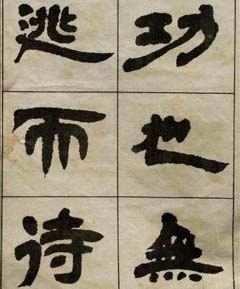 功也無
逃而待